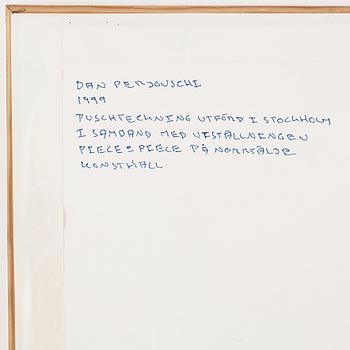 DAN PERJOVSCHI
1999
TUSCHTECKNING UTFÖRD I STOCKHOLM
I SAMBAND MED UTSTÄLLNINGEN
PIECE : PIECE PÅ NORRTÄLJE
KONSTHALL